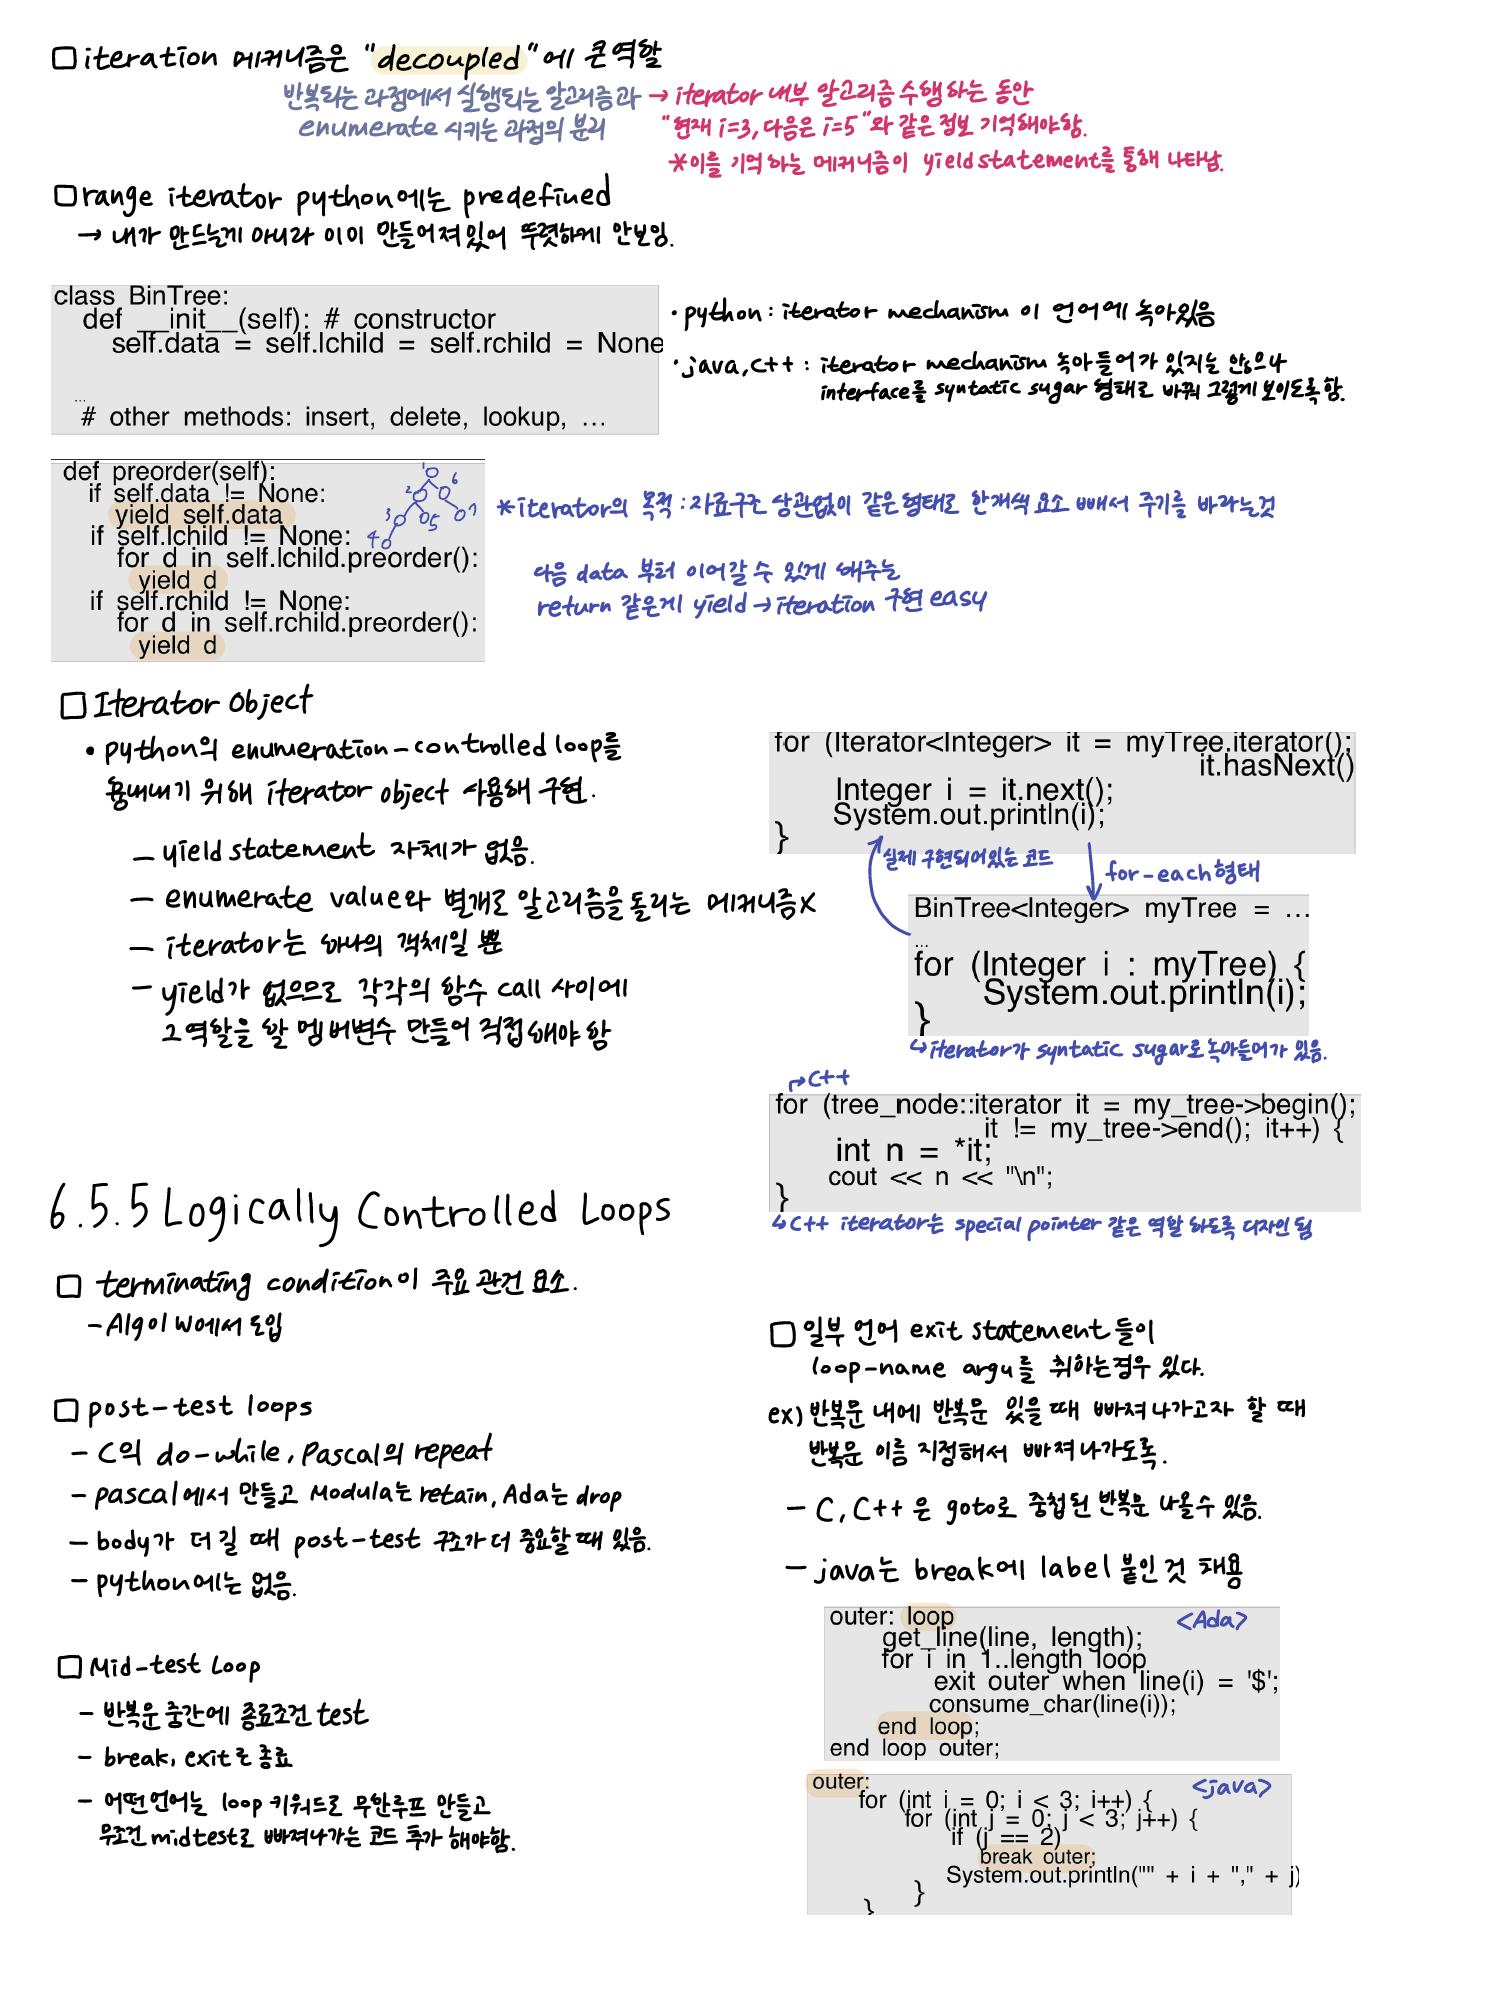 □ iteration 메커니즘은 "decoupled"에 큰 역할
반복되는 과정에서 실행되는 알고리즘과 → iterator 내부 알고리즘 수행하는 동안
enumerate 시키는 과정의 분리
"현재 i=3, 다음은 i=5"와 같은 정보 기억해야함.
*이를 기억하는 메커니즘이 yield statement를 통해 나타남.
□ range iterator python에는 predefined
→ 내가 만드는게 아니라 이미 만들어져있어 뚜렷하게 안보임.
class BinTree:
def __init__(self): # constructor
self.data = self.lchild = self.rchild = None
...
# other methods: insert, delete, lookup, ...
• python : iterator mechanism 이 언어에 녹아있음
• java, c++ : iterator mechanism 녹아들어가 있지는 않으나
interface를 syntatic sugar 형태로 바꿔 그렇게 보이도록 함.
def preorder(self):
if self.data != None:
yield self.data
if self.lchild != None:
for d in self.lchild.preorder():
yield d
if self.rchild != None:
for d in self.rchild.preorder():
yield d
1
2
6
3
5
7
4
*iterator의 목적 : 자료구조 상관없이 같은 형태로 한개씩 요소 빼서 주기를 바라는것
다음 data 부터 이어갈 수 있게 해주는
return 같은게 yield → iteration 구현 easy
□ Iterator Object
• python의 enumeration-controlled loop를
흉내내기 위해 iterator object 사용해 구현.
– yield statement 자체가 없음.
– enumerate value와 별개로 알고리즘을 돌리는 메커니즘X
– iterator는 하나의 객체일 뿐
– yield가 없으므로 각각의 함수 call 사이에
그 역할을 할 멤버변수 만들어 직접해야 함
for (Iterator<Integer> it = myTree.iterator();
it.hasNext()
Integer i = it.next();
System.out.println(i);
}
실제 구현되어있는 코드
for-each형태
BinTree<Integer> myTree = ...
...
for (Integer i : myTree) {
System.out.println(i);
}
↳ iterator가 syntatic sugar로 녹아들어가 있음.
→ C++
for (tree_node::iterator it = my_tree->begin();
it != my_tree->end(); it++) {
int n = *it;
cout << n << "\n";
}
↳ C++ iterator는 special pointer 같은 역할 하도록 디자인 됨
6.5.5 Logically Controlled Loops
□ terminating condition이 주요 관건 요소.
– Algol W에서 도입
□ post-test loops
– C의 do-while, Pascal의 repeat
– pascal에서 만들고 Modula는 retain, Ada는 drop
– body가 더 길 때 post-test 구조가 더 중요할 때 있음.
– python에는 없음.
□ Mid-test Loop
– 반복문 중간에 종료조건 test
– break, exit로 종료
– 어떤언어는 loop 키워드로 무한루프 만들고
무조건 midtest로 빠져나가는 코드 추가 해야함.
□ 일부 언어 exit statement 들이
loop-name argu를 취하는경우 있다.
ex) 반복문 내에 반복문 있을 때 빠져나가고자 할 때
반복문 이름 지정해서 빠져나가도록.
– C, C++ 은 goto로 중첩된 반복문 나올수 있음.
– java는 break에 label 붙인 것 채용
outer: loop
get_line(line, length);
for i in 1..length loop
exit outer when line(i) = '$';
consume_char(line(i));
end loop;
end loop outer;
<Ada>
outer:
for (int i = 0; i < 3; i++) {
for (int j = 0; j < 3; j++) {
if (j == 2)
break outer;
System.out.println("" + i + "," + j)
}
}
<java>